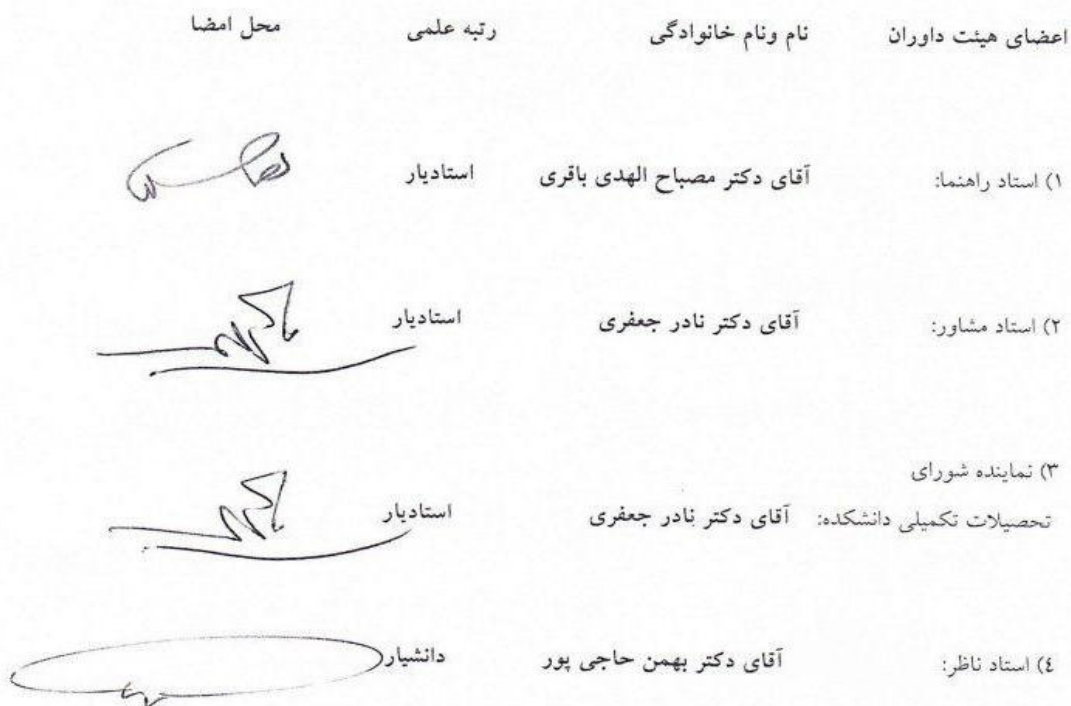 اعضای هیئت داوران نام ونام خانوادگی رتبه علمی محل امضا
۱) استاد راهنما: آقای دکتر مصباح الهدی باقری استادیار
۲) استاد مشاور: آقای دکتر نادر جعفری استادیار
۳) نماینده شورای
تحصیلات تکمیلی دانشکده: آقای دکتر نادر جعفری استادیار
٤) استاد ناظر: آقای دکتر بهمن حاجی پور دانشیار